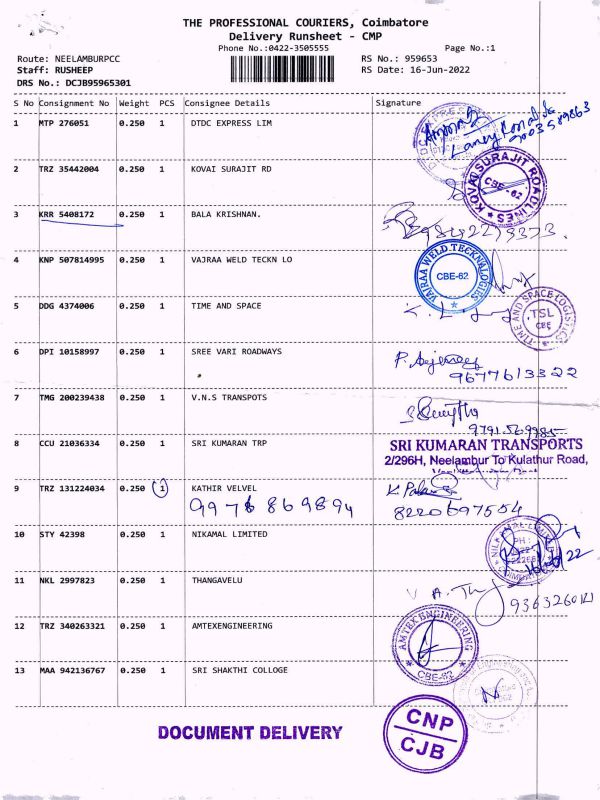 THE PROFESSIONAL COURIERS, Coimbatore
Delivery Runsheet - CMP
Phone No.:0422-3505555 Page No.:1
Route: NEELAMBURPCC RS No.: 959653
Staff: RUSHEEP RS Date: 16-Jun-2022
DRS No.: DCJB95965301
S No Consignment No Weight PCS Consignee Details Signature
1 MTP 276051 0.250 1 DTDC EXPRESS LIM
2 TRZ 35442004 0.250 1 KOVAI SURAJIT RD
KOVAI SURAJIT ROADLINES CBE-62
3 KRR 5408172 0.250 1 BALA KRISHNAN.
4 KNP 507814995 0.250 1 VAJRAA WELD TECKN LO
VAJRAA WELD. TECKNALOGIES CBE-62
5 DDG 4374006 0.250 1 TIME AND SPACE
TIME AND SPACE LOGISTICS TSL CBE
6 DPI 10158997 0.250 1 SREE VARI ROADWAYS
9677613322
7 TMG 200239438 0.250 1 V.N.S TRANSPOTS
9791569985
8 CCU 21036334 0.250 1 SRI KUMARAN TRP
SRI KUMARAN TRANSPORTS
2/296H, Neelambur To Kulathur Road,
9 TRZ 131224034 0.250 1 KATHIR VELVEL
9976869894 8220697554
10 STY 42398 0.250 1 NIKAMAL LIMITED
11 NKL 2997823 0.250 1 THANGAVELU
12 TRZ 340263321 0.250 1 AMTEXENGINEERING
AMTEX ENGINEERING CBE-62
13 MAA 942136767 0.250 1 SRI SHAKTHI COLLOGE
DOCUMENT DELIVERY
CNP
CJB